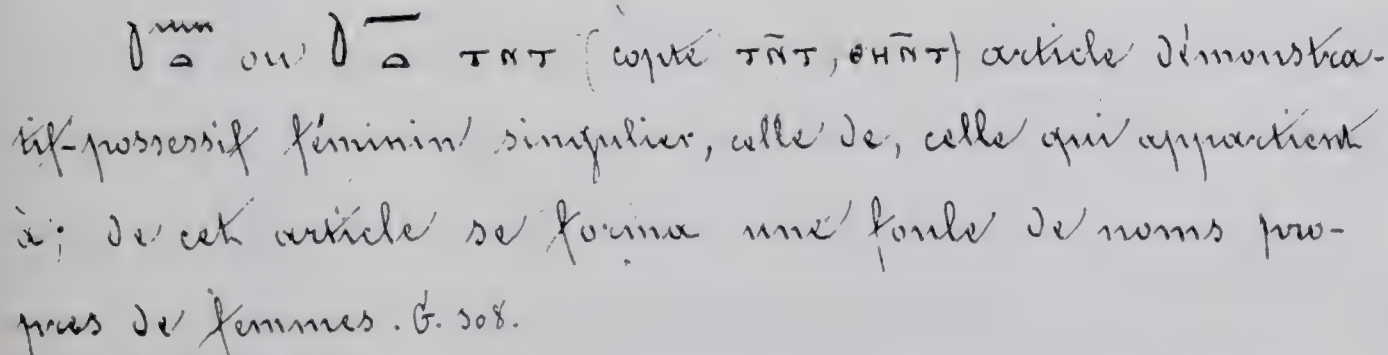 𓍘𓈖𓏏 ou 𓍘𓈖𓏏 ⲧⲛⲧ (copte ⲧⲛ̄ⲧ, ⲑⲏⲛ̄ⲧ) article démonstra-
tif-possessif féminin singulier, celle de, celle qui appartient
à; de cet article se forma une foule de noms pro-
pres de femmes. G. 308.